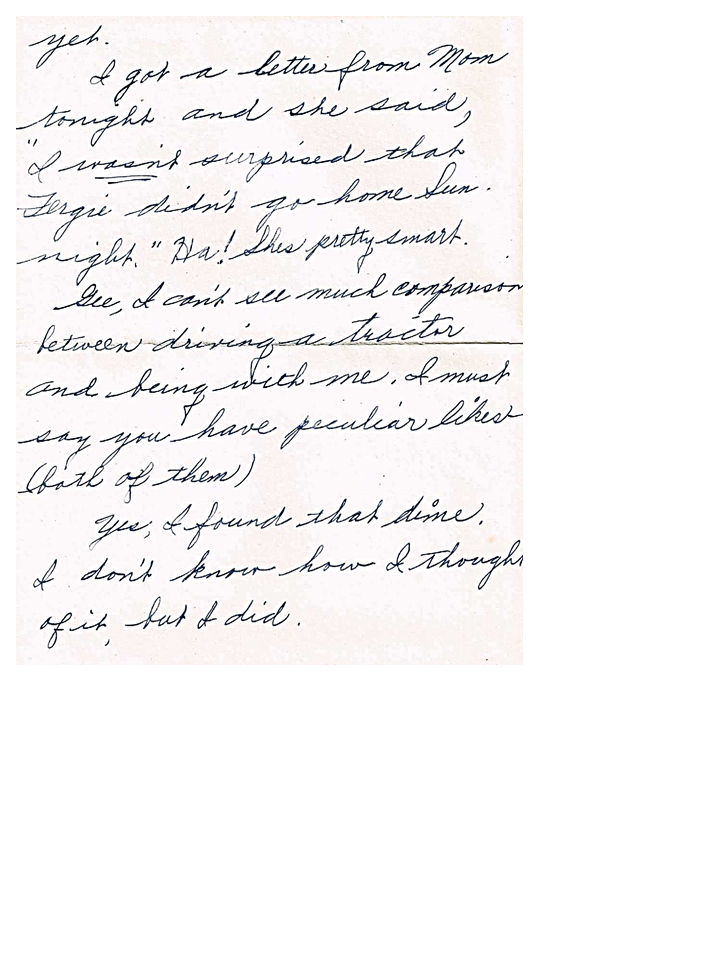 yet.
I got a letter from Mom
tonight and she said,
"I wasn't surprised that
Fergie didn't go home Sun.
night." Ha! Shes pretty smart.
Gee, I can't see much comparison
between driving a tractor
and being with me. I must
say you have peculiar likes
(both of them)
Yes, I found that dime.
I don't know how I thought
of it, but I did.